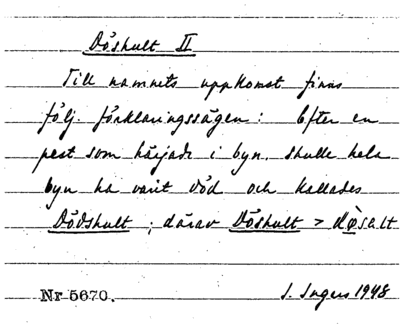 Döshult II
Till namnets uppkomst finns
följ. förklaringssägen: Efter en
pest som härjade i byn, skulle hela
byn ha varit död och kallades
Dödshult; därav Döshult > dø̀salt
Nr 5670. I. Ingers 1948